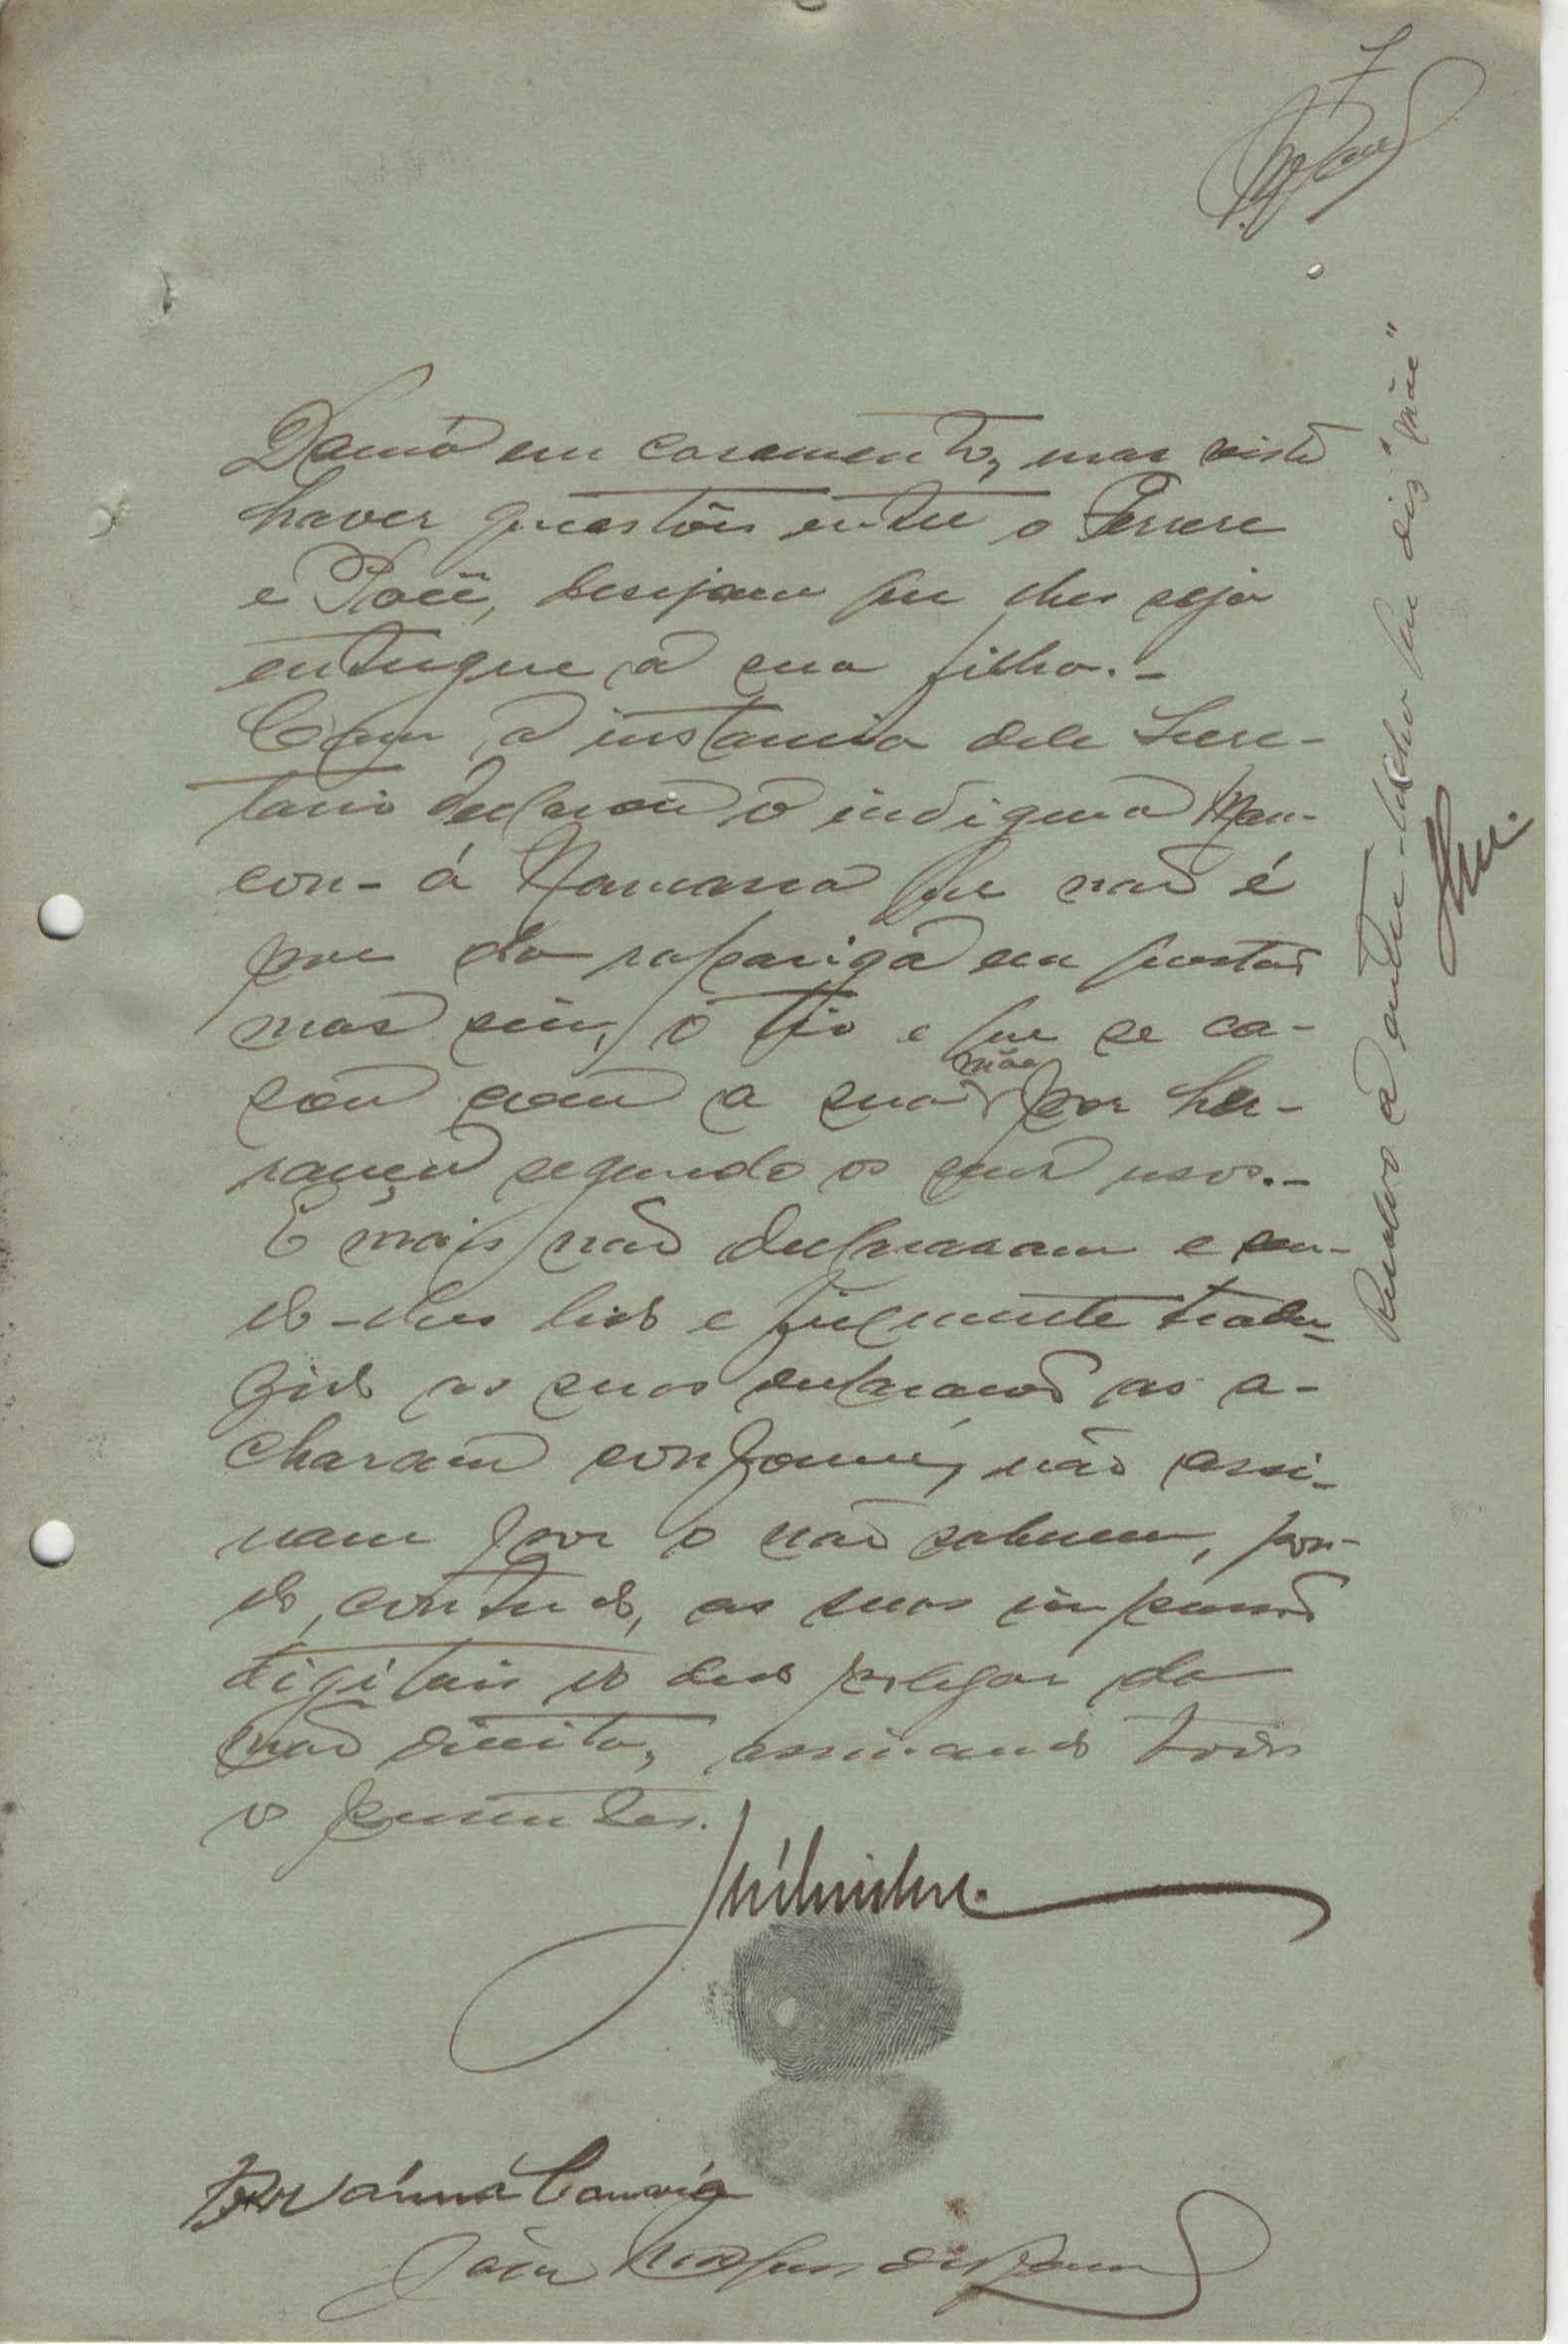 7
Damá em casamento, mas visto
haver questões entre o Ferrere
e Paeë, desejam que lhes seja
entregue a sua filha.-
Com a instancia dele Secre-
tario declarou o indigena Man-
con-á Namara que não é
pae da rapariga em questão
mas sim, o tio e que se ca-
sou com a sua mãe por he-
rança segundo os seus usos.-
E mais não declararam e sen-
do-lhes lido e fielmente tradu-
zido as suas declarações as a-
charam conforme, não assi-
nam por o não saberem, pon-
do, contudo, as suas impressões
digitais do dedo polegar da
mão direita, assinando todos
os presentes.
Ressalvo a entre-linha que diz "mãe"